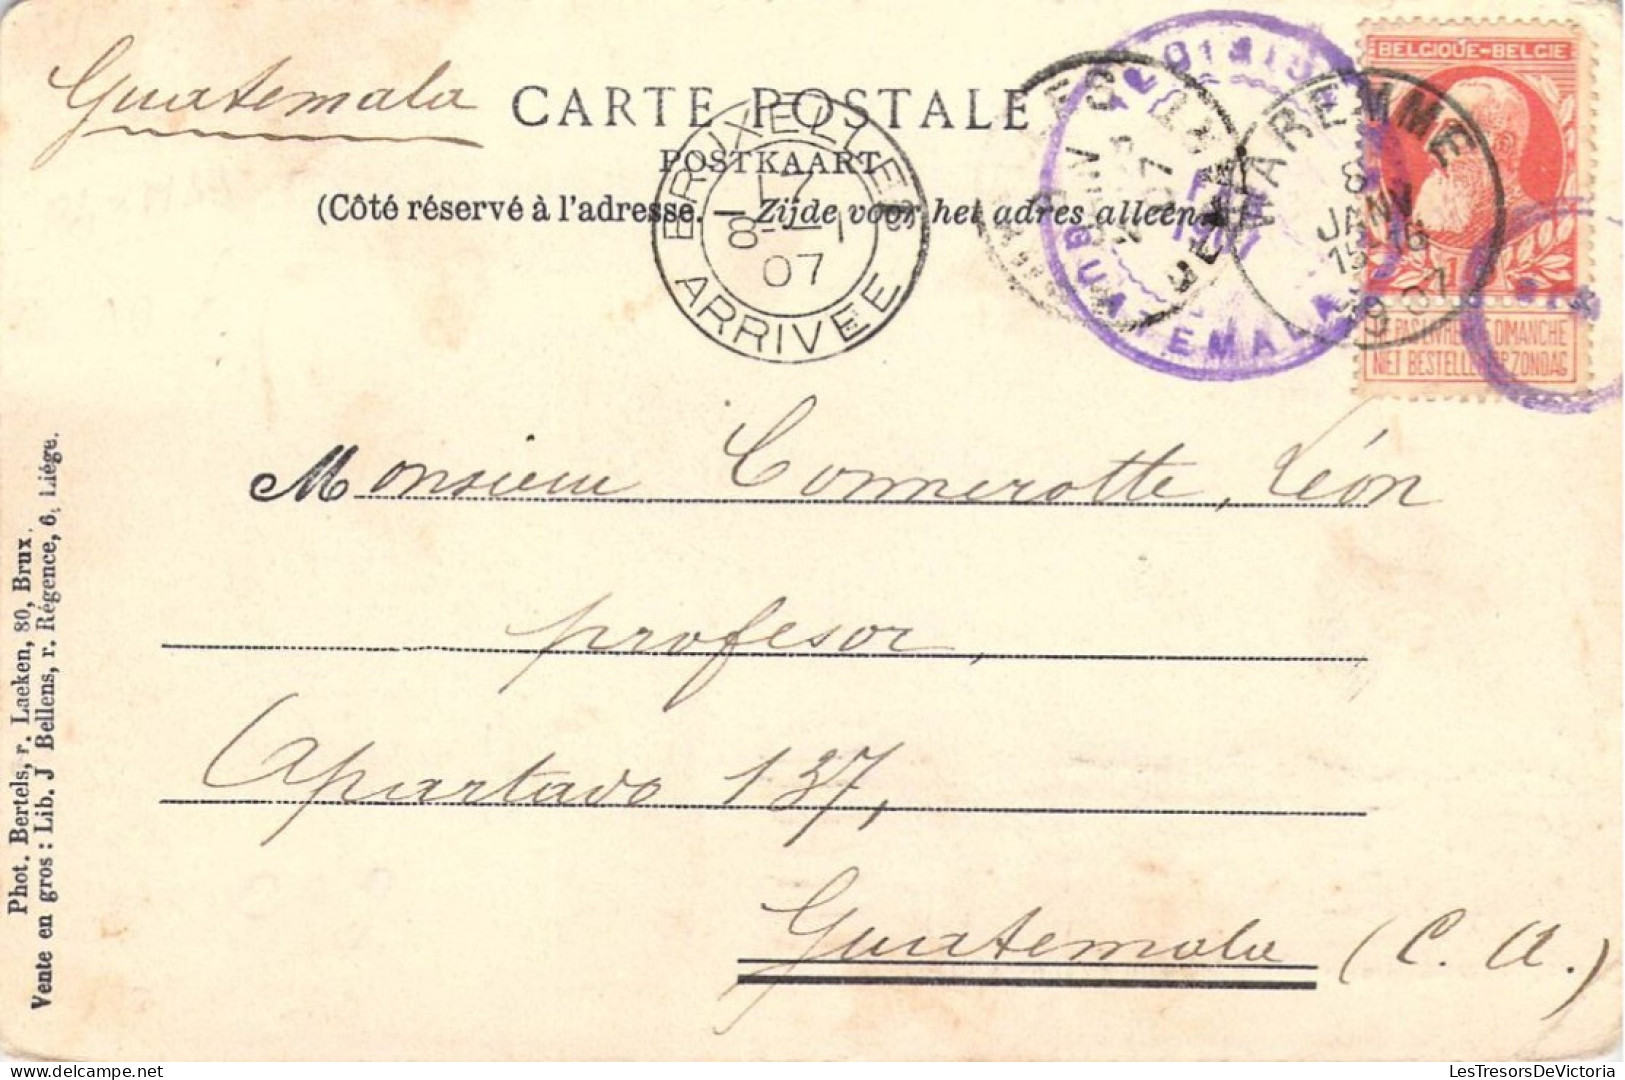 Guatemala
CARTE POSTALE
POSTKAART
(Côté réservé à l'adresse. — Zijde voor het adres alleen
BRUXELLES
8-1
07
ARRIVEE
GUATEMALA
WAREMME
8
JANV
15-16
1907
BELGIQUE-BELGIE
NE PAS LIVRER LE DIMANCHE
NIET BESTELLEN OP ZONDAG
Monsieur Connerotte, Léon
profesor,
Apartado 137,
Guatemala (C. A.)
Phot. Bertels, r. Laeken, 80, Brux.
Vente en gros : Lib. J Bellens, r. Régence, 6, Liége.
LesTresorsDeVictoria